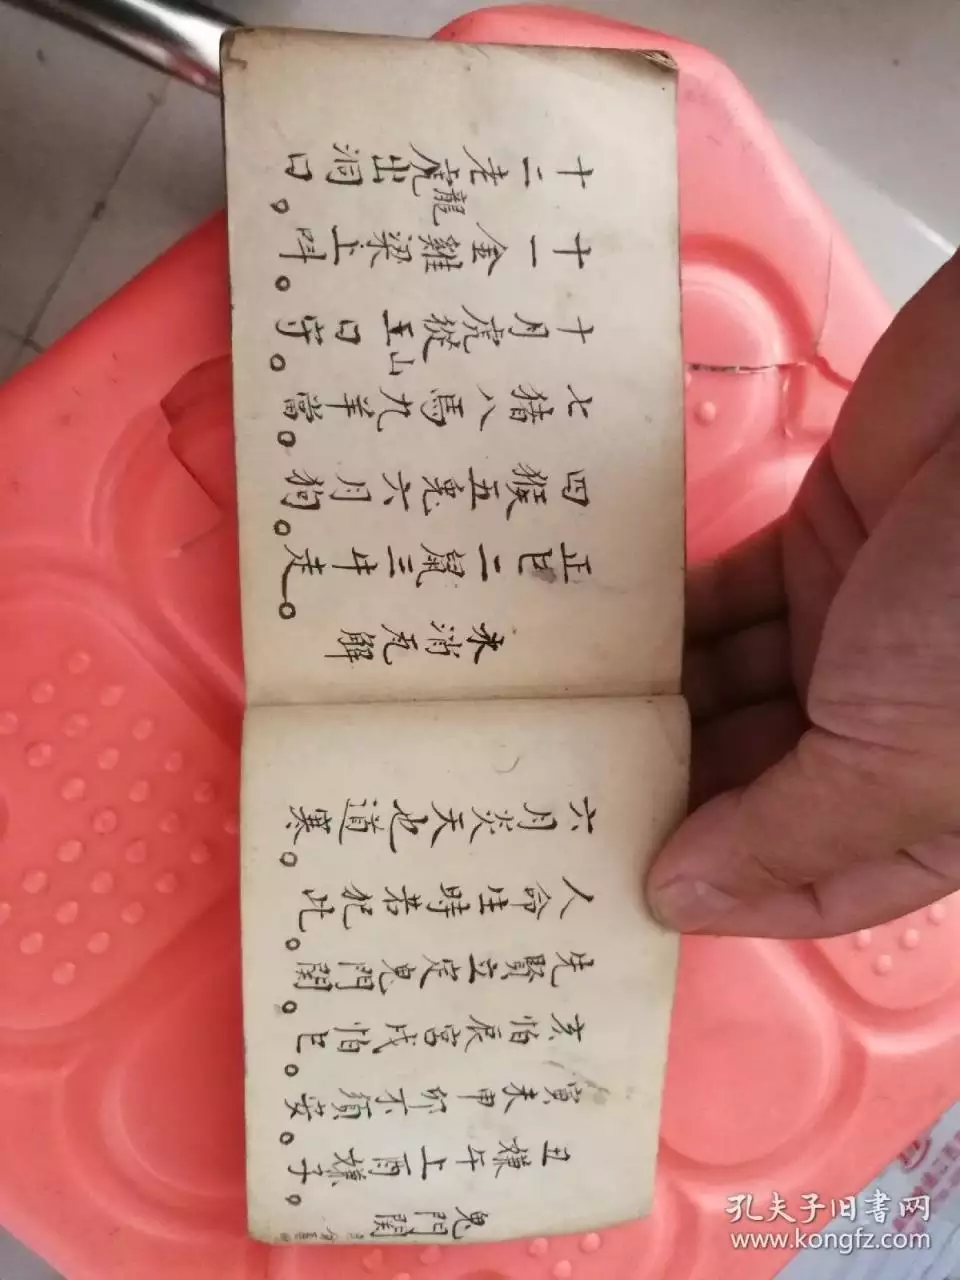 鬼門關
丑嫌午上酉嫌子。
寅未申卯不須安。
亥怕辰宮戌怕巳。
先賢立定鬼門關。
人命生時若犯此。
六月炎天也道寒。
氷消瓦解
正巳二鼠三牛走。
四猴五兔六月狗。
七猪八馬九羊當。
十月虎從山王口守。
十一金雞梁上叫。
龍
十二老虎出洞口。
孔夫子旧书网
www.kongfz.com